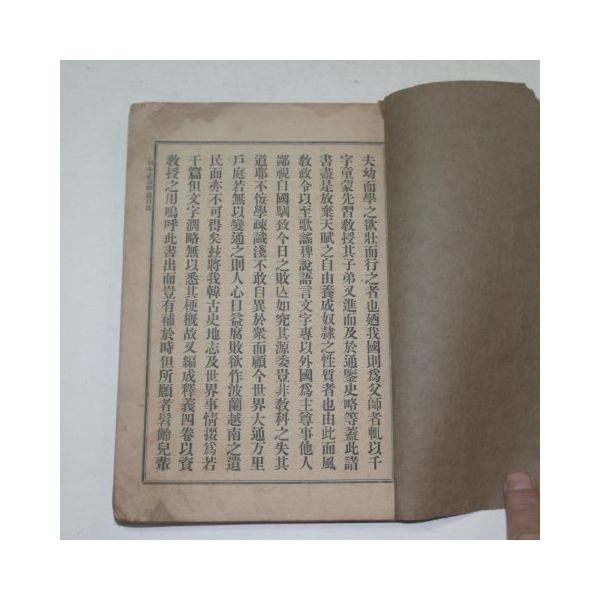 夫幼而學之欲壯而行之者也廼我國則爲父師者輒以千
字童蒙先習教授其子弟又進而及於通鑒史略等蓋此諸
書盡是放棄天賦之自由養成奴隸之性質者也由此而風
教政令以至歌謠稗說語言文字專以外國爲主尊事他人
鄙視自國馴致今日之敗亾如究其源委豈非教科之失其
道耶不侫學疎識淺不敢自異於衆而顧今世界大通万里
戶庭若無以變通之則人心日益腐敗欲作波蘭越南之遺
民而亦不可得矣玆將我韓古史地志及世界事情掇爲若
干篇但文字濶略無以悉其梗槪故又編成釋義四卷以資
教授之用嗚呼此書出而豈有補於時但所願者髫齡兒輩